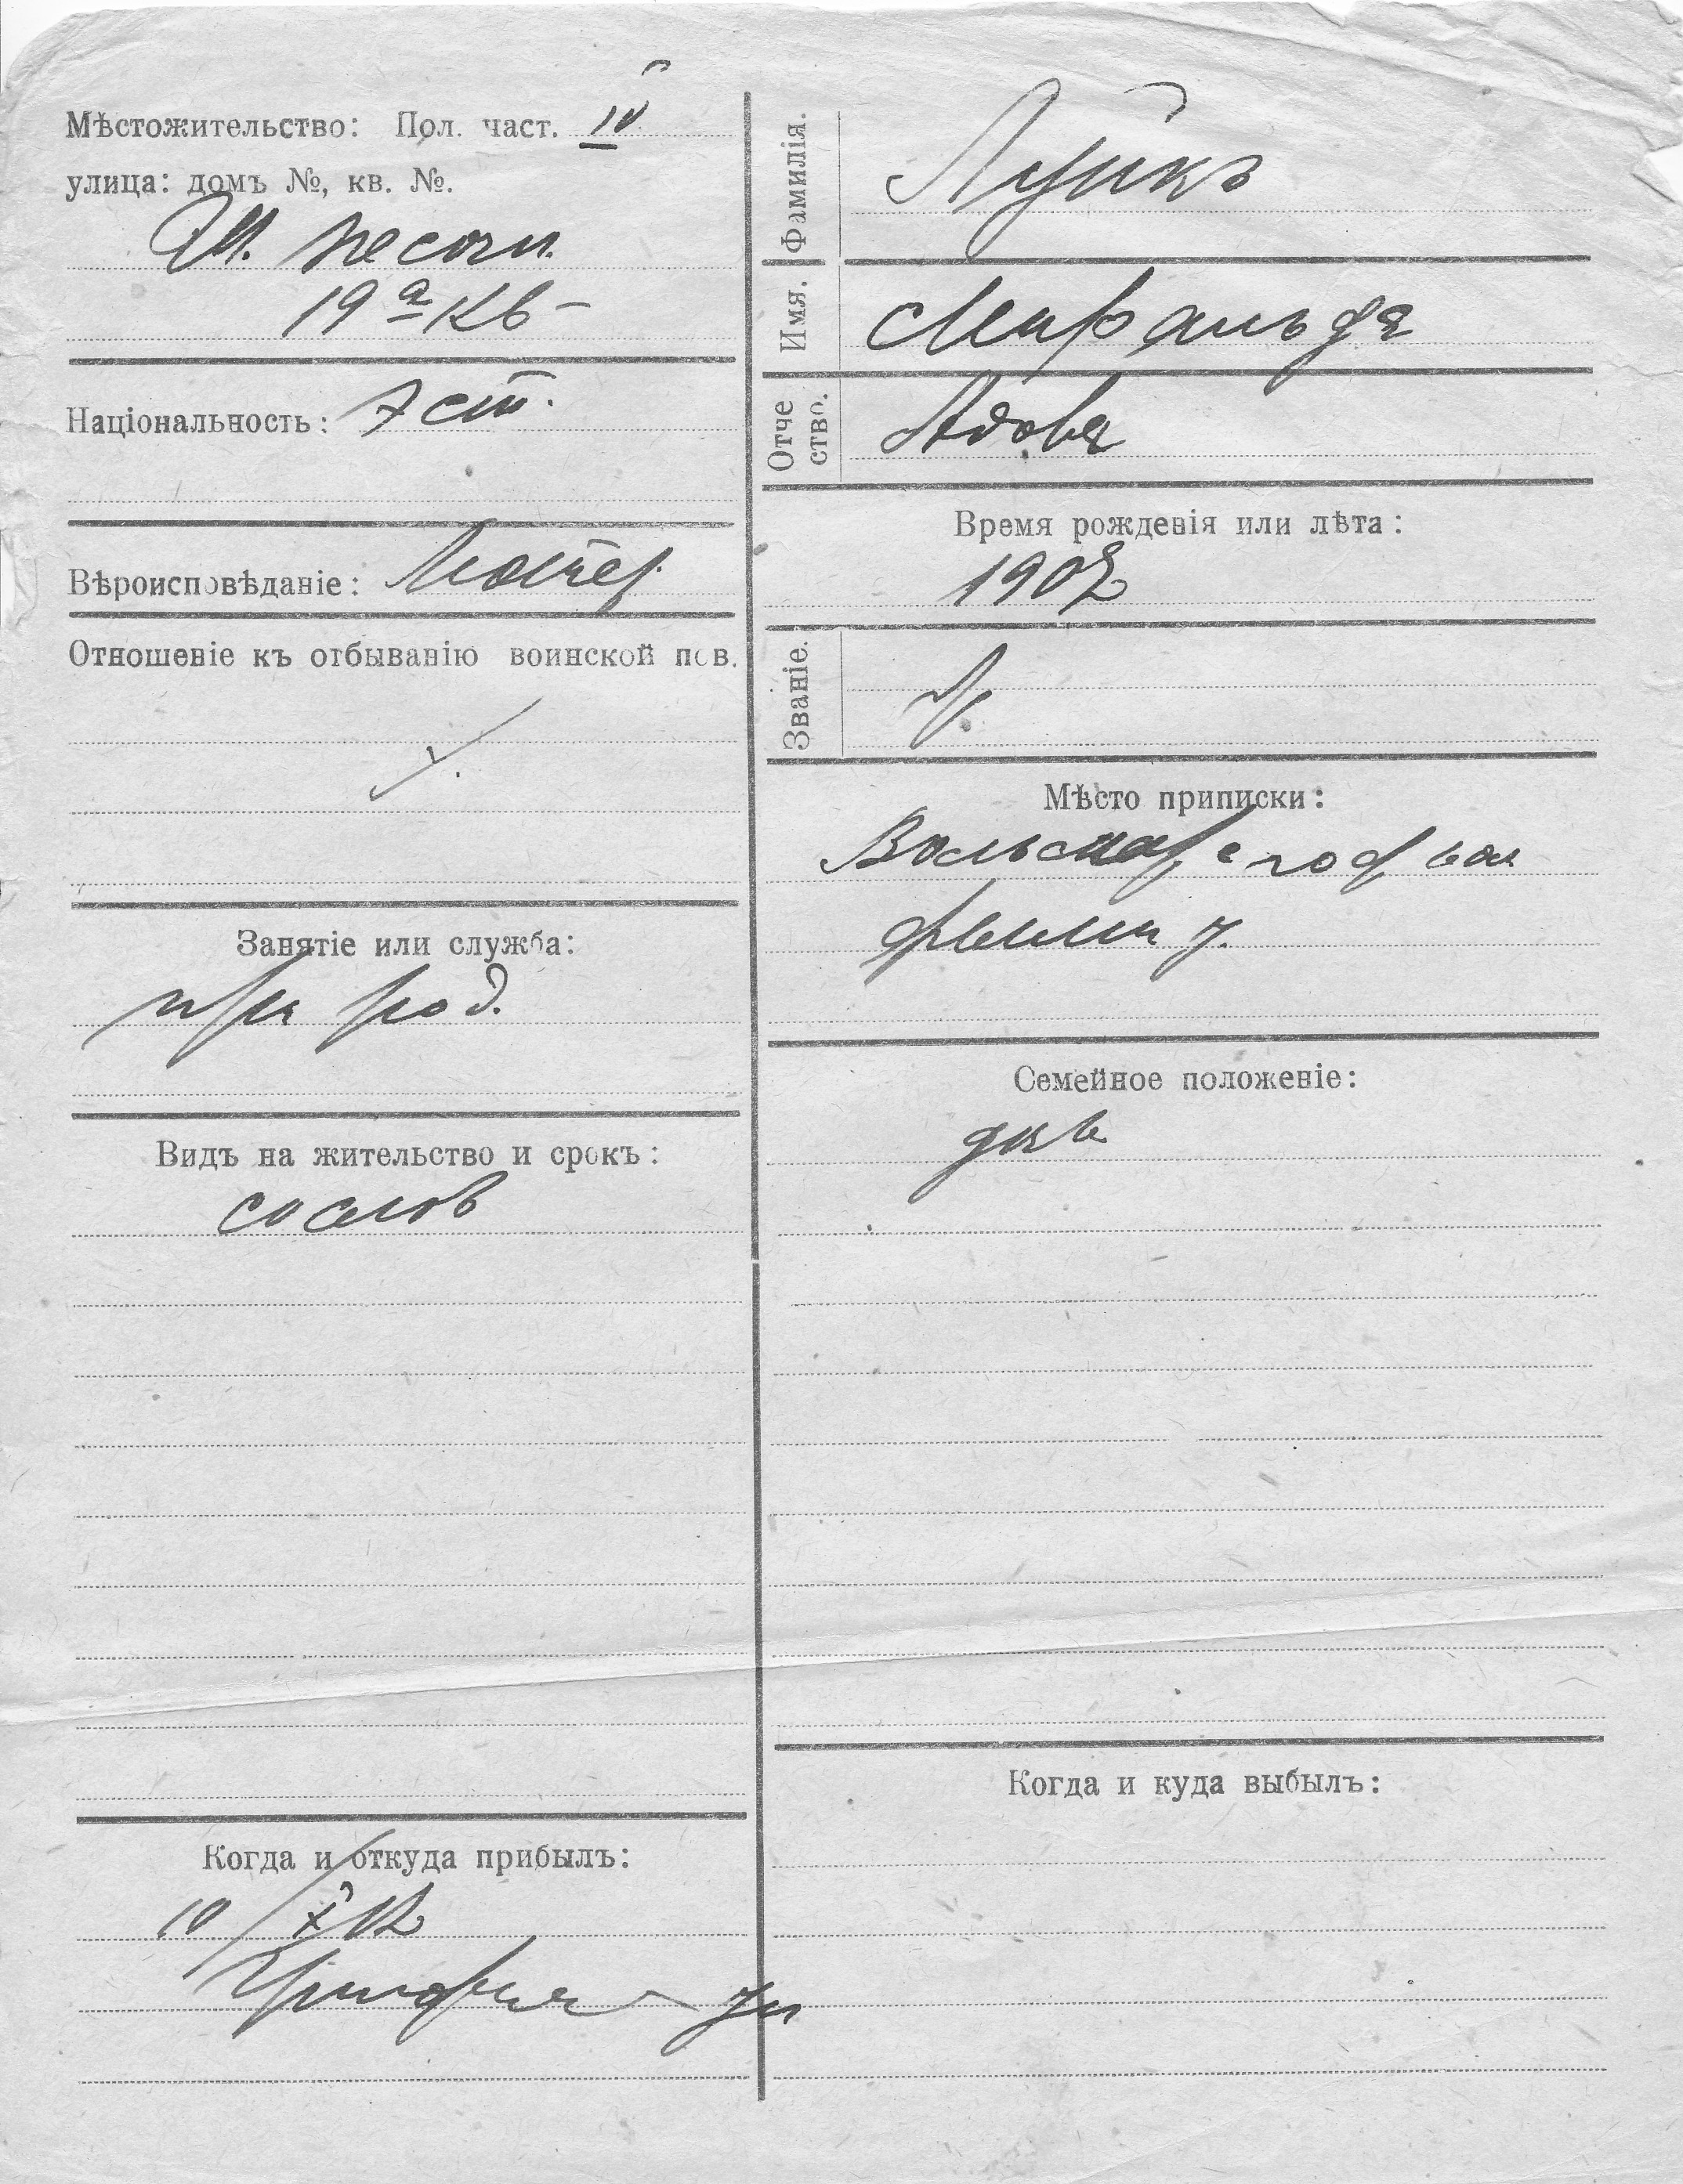 Мѣстожительство: Пол. част. IV
улица: домъ №, кв. №.
М. песочн.
19а кв –
Національность: Эст.
Вѣроисповѣданіе: Лютер.
Отношеніе къ отбыванію воинской пов.
Занятіе или служба:
при род.
Видъ на жительство и срокъ:
сослов
Когда и откуда прибылъ:
10/X
ул
Фамилія. Луйкъ
Имя. Миральда
Отче
ство. Адова
Время рожденія или лѣта:
1902
Званіе. кр.
Мѣсто приписки:
вол
Феллин у.
Семейное положеніе:
дѣв
Когда и куда выбылъ: